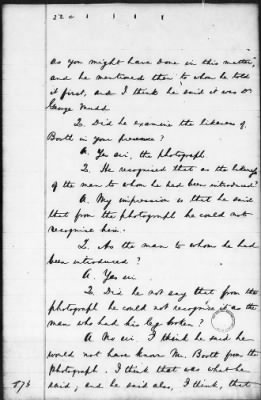 as you might have done in this matter,
and he mentioned then to whom he told
it first, and I think he said it was Dr
George Mudd
Q. Did he examine the likeness of
Booth in your presence?
A. Yes sir, the photograph
Q. He recognised that as the likeness
of the man to whom he had been introduced?
A. My impression is that he said
that from the photograph he could not
recognise him.
Q. As the man to whom he had
been introduced?
A. Yes sir
Q. Did he not say that from the
photograph he could not recognise it as the
man who had his leg broken?
A. No sir. I think he said he
would not have know Mr. Booth from the
photograph. I think that was what he
said; and he said also, I think, that